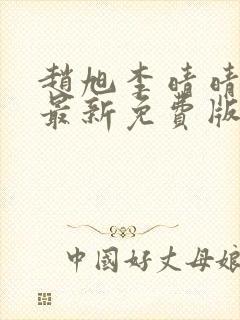 趙旭李晴晴
最新免費版
中國好丈母娘